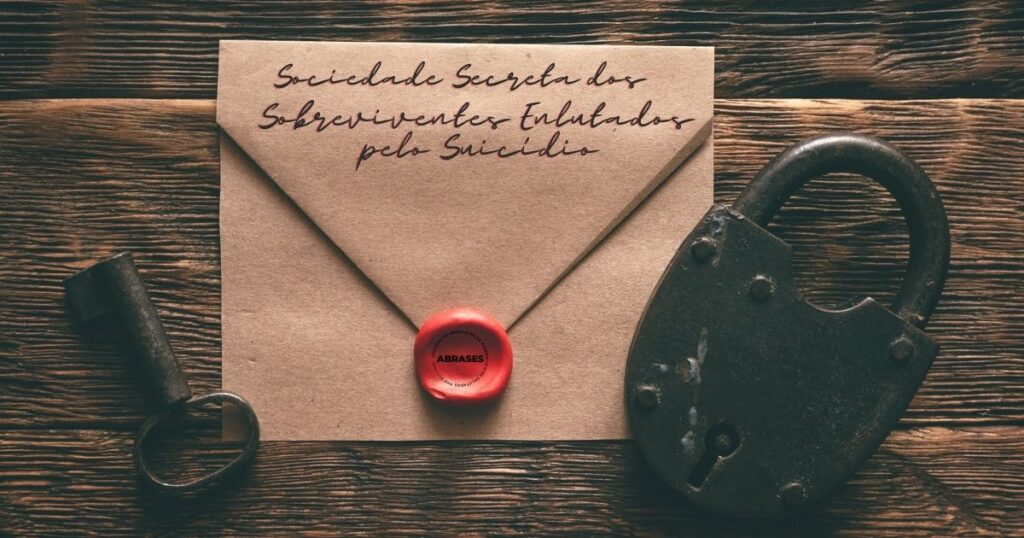 Sociedade Secreta dos
Sobreviventes Enlutados
pelo Suicídio
ABRASES